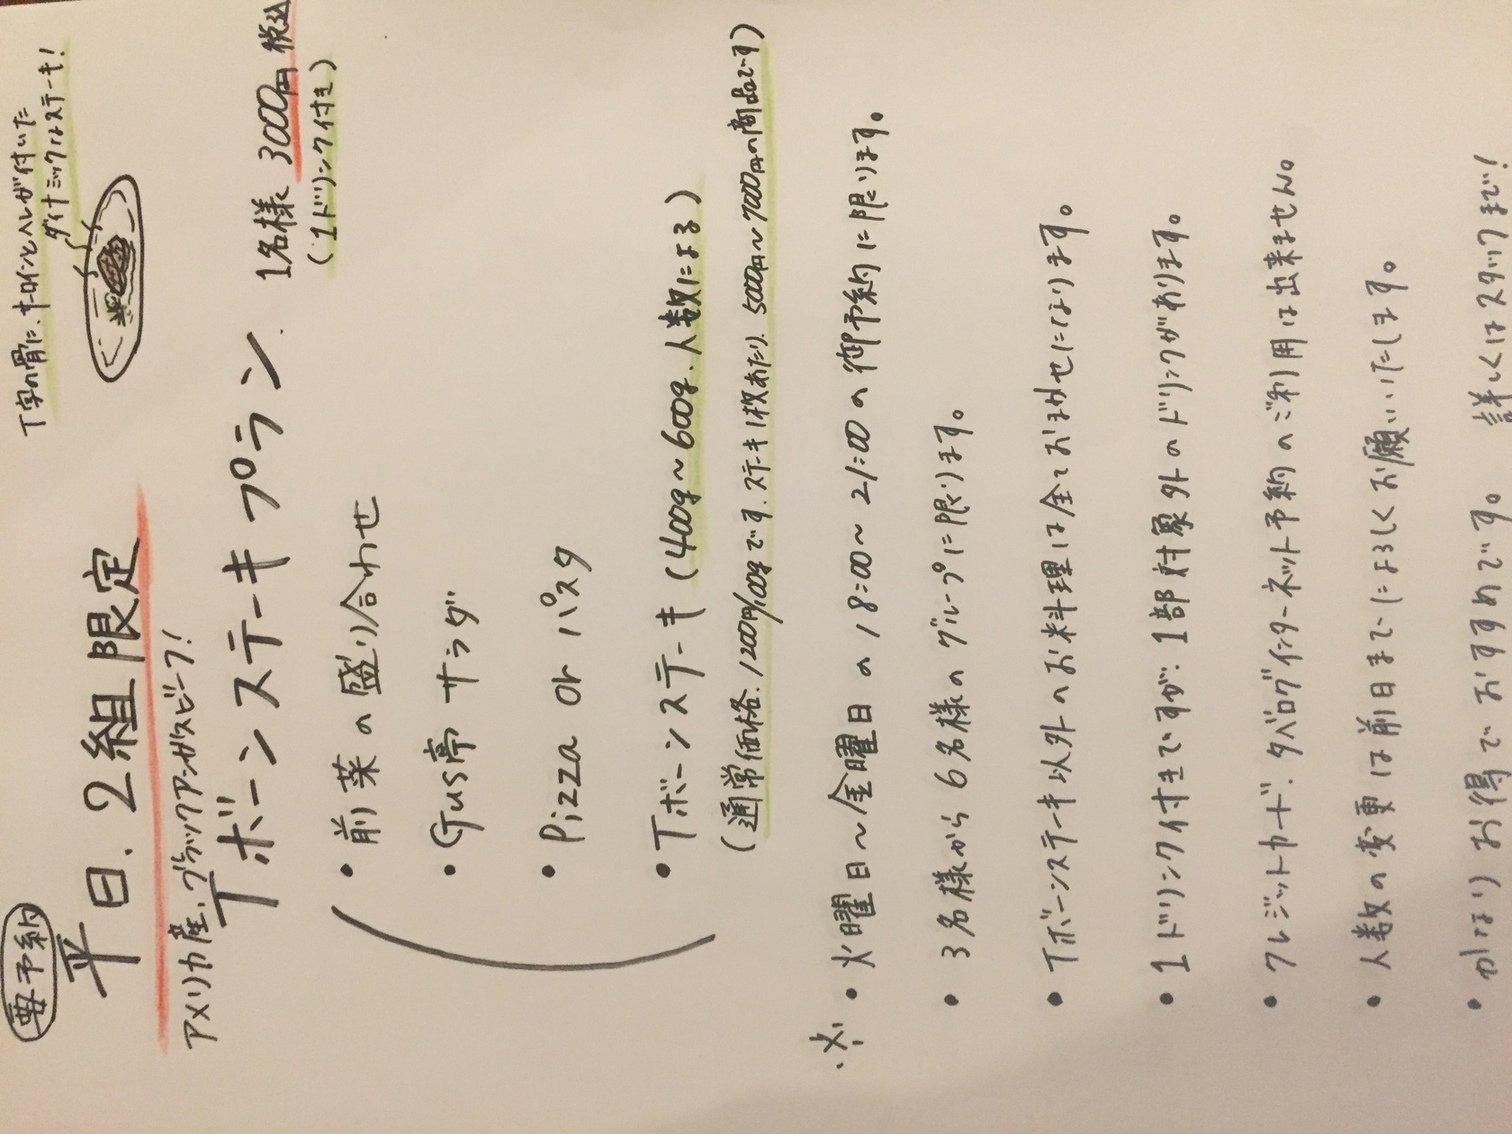 要予約
平日、2組限定
T字の骨に、サーロインとヘレが付いた
ダイナミックなステーキ!
アメリカ産、ブラックアンガスビーフ!
Tボーンステーキプラン
1名様 3000円 税込
(1ドリンク付き)
・前菜の盛り合わせ
・Gus亭 サラダ
・Pizza or パスタ
・Tボーンステーキ (400g〜600g、人数による)
(通常価格、1200円/100gです。ステーキ1枚あたり、5000円〜7000円の商品です)
※・火曜日〜金曜日の 18:00〜21:00の御予約に限ります。
・3名様から6名様のグループに限ります。
・Tボーンステーキ以外のお料理は全ておまかせになります。
・1ドリンク付きですが、1部対象外のドリンクがあります。
・クレジットカード、タベログインターネット予約のご利用は出来ません。
・人数の変更は前日までによろしくお願いいたします。
・かなりお得でおすすめです。 詳しくはスタッフまで!